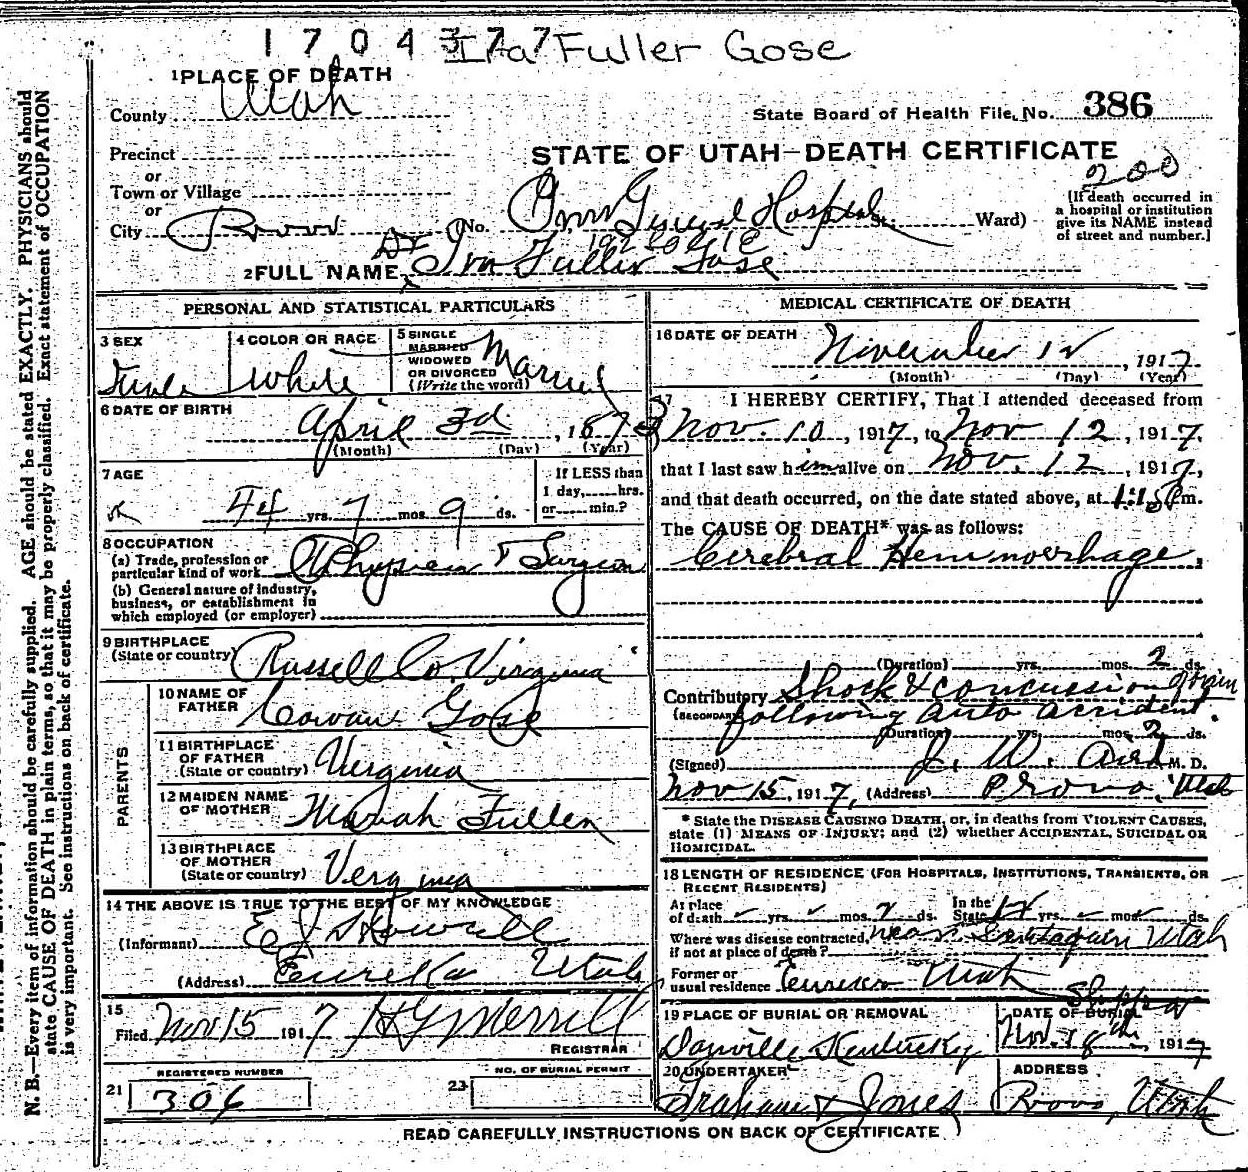 1704377 Ira Fuller Gose
1 PLACE OF DEATH
County Utah
State Board of Health File No. 386
Precinct
STATE OF UTAH—DEATH CERTIFICATE
or
200
Town or Village
or
City Provo (No. General Hospital St. Ward)
[If death occurred in a hospital or institution give its NAME instead of street and number.]
2 FULL NAME Dr Ira Fuller Gose
PERSONAL AND STATISTICAL PARTICULARS
3 SEX
4 COLOR OR RACE White
5 SINGLE MARRIED WIDOWED OR DIVORCED (Write the word) Married
6 DATE OF BIRTH
April 3d, 1873
(Month) (Day) (Year)
7 AGE
44 yrs. 7 mos. 9 ds.
If LESS than 1 day, hrs. or min.?
8 OCCUPATION
(a) Trade, profession or particular kind of work Physician & Surgeon
(b) General nature of industry, business, or establishment in which employed (or employer)
9 BIRTHPLACE (State or country) Russell Co. Virginia
PARENTS
10 NAME OF FATHER Cowan Gose
11 BIRTHPLACE OF FATHER (State or country) Virginia
12 MAIDEN NAME OF MOTHER Fuller
13 BIRTHPLACE OF MOTHER (State or country) Verginia
14 THE ABOVE IS TRUE TO THE BEST OF MY KNOWLEDGE
(Informant) E J Howell
(Address) Eureka Utah
15
Filed Nov 15 1917 H G Merrill
REGISTRAR
21 REGISTERED NUMBER 306
23 NO. OF BURIAL PERMIT
MEDICAL CERTIFICATE OF DEATH
16 DATE OF DEATH
November 12, 1917
(Month) (Day) (Year)
17 I HEREBY CERTIFY, That I attended deceased from
Nov. 10, 1917, to Nov 12, 1917,
that I last saw him alive on Nov. 12, 1917,
and that death occurred, on the date stated above, at m.
The CAUSE OF DEATH* was as follows:
Cerebral Hemmorrhage,
(Duration) yrs. mos. 2 ds.
Contributory Shock & concussion of brain
(SECONDARY) following auto accident.
(Duration) yrs. mos. 2 ds.
(Signed) J. W. Aird M. D.
Nov 15, 1917, (Address) Provo, Utah
* State the DISEASE CAUSING DEATH, or, in deaths from VIOLENT CAUSES, state (1) MEANS OF INJURY; and (2) whether ACCIDENTAL, SUICIDAL OR HOMICIDAL.
18 LENGTH OF RESIDENCE (FOR HOSPITALS, INSTITUTIONS, TRANSIENTS, OR RECENT RESIDENTS)
At place of death yrs. mos. 2 ds. In the State 12 yrs. mos. ds.
Where was disease contracted, if not at place of death? near Santaquin Utah
Former or usual residence Eureka Utah
19 PLACE OF BURIAL OR REMOVAL
Danville Kentucky
DATE OF BURIAL
Nov. 18th, 1917
20 UNDERTAKER
Graham & Jones
ADDRESS
Provo, Utah
READ CAREFULLY INSTRUCTIONS ON BACK OF CERTIFICATE
N. B.—Every item of information should be carefully supplied. AGE should be stated EXACTLY. PHYSICIANS should
state CAUSE OF DEATH in plain terms, so that it may be properly classified. Exact statement of OCCUPATION
is very important. See instructions on back of certificate.